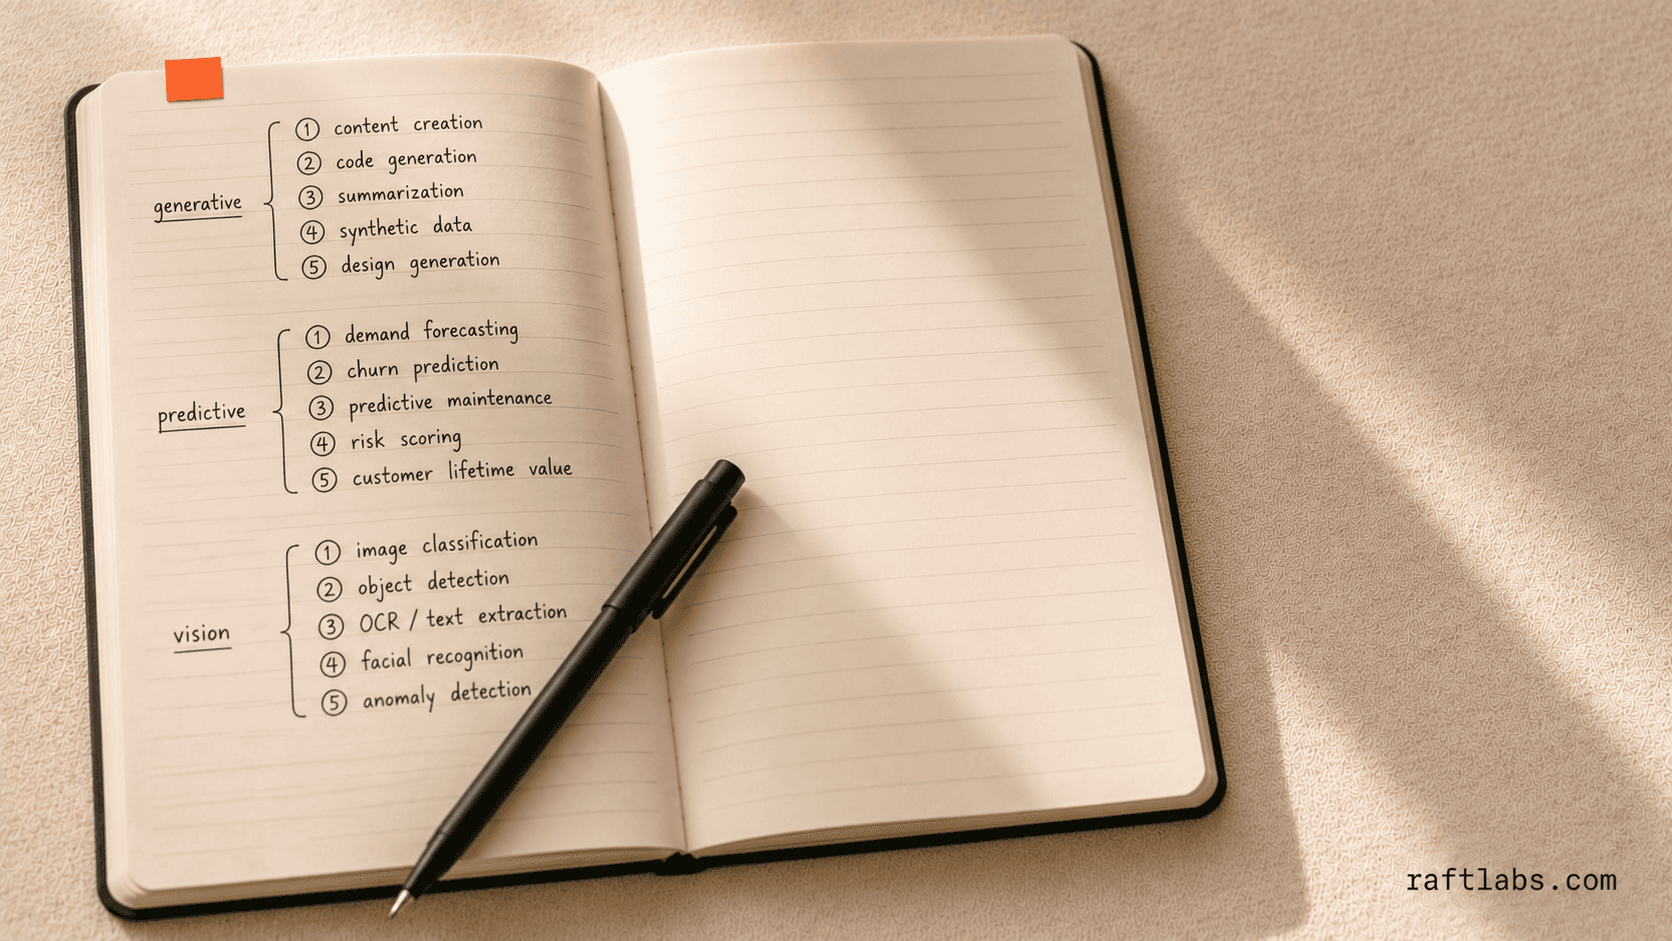 generative
① content creation
② code generation
③ summarization
④ synthetic data
⑤ design generation
predictive
① demand forecasting
② churn prediction
③ predictive maintenance
④ risk scoring
⑤ customer lifetime value
vision
① image classification
② object detection
③ OCR / text extraction
④ facial recognition
⑤ anomaly detection
raftlabs.com